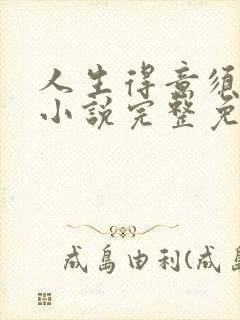 人生得意须
小说完整免
成岛由利(成岛